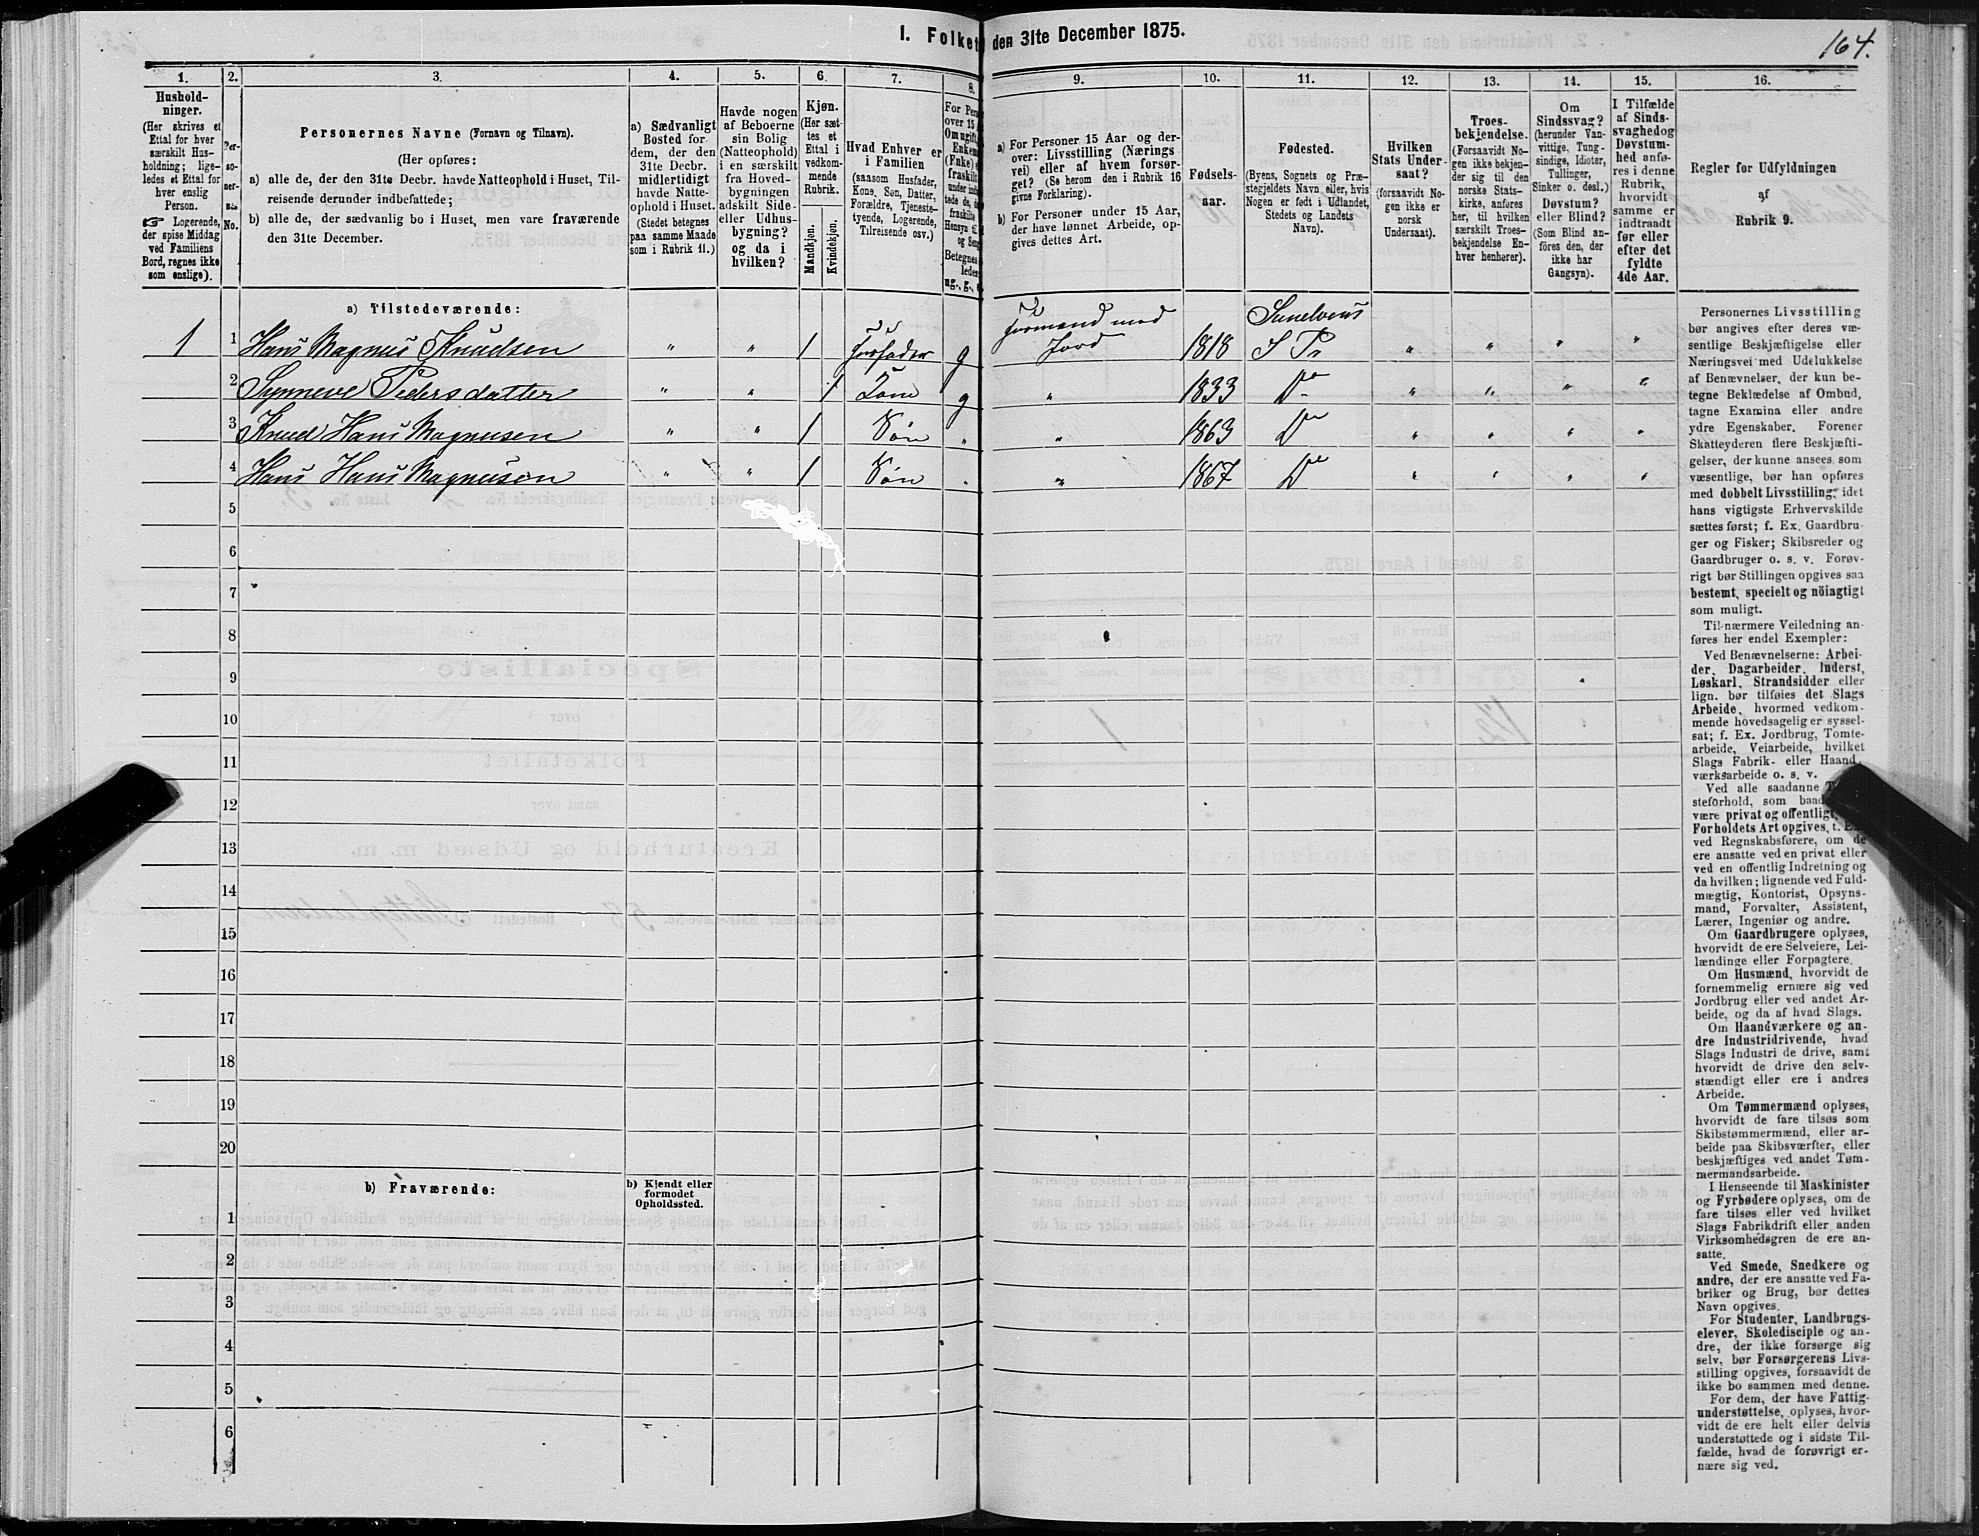 1. Folket den 31te December 1875.
164.
1.
2.
3.
4.
5.
6.
7.
8.
9.
10.
11.
12.
13.
14.
15.
16.
Hushold-
ninger.
(Her skrives et
Ettal for hver
særskilt Hus-
holdning; lige-
ledes et Ettal for
hver enslig
Person.
☞ Logerende,
der spise Middag
ved Familiens
Bord, regnes ikke
som enslige).
Per-
so-
ner-
nes
No.
Personernes Navne (Fornavn og Tilnavn).
(Her opføres:
a) alle de, der den 31te Decbr. havde Natteophold i Huset, Til-
reisende derunder indbefattede;
b) alle de, der sædvanlig bo i Huset, men vare fraværende
den 31te December.
a) Sædvanligt
Bosted for
dem, der den
31te Decbr.
midlertidigt
havde Natte-
ophold i Huset.
(Stedet betegnes
paa samme Maade
som i Rubrik 11.)
Havde nogen
af Beboerne
sin Bolig
(Natteophold)
i en særskilt
fra Hoved-
bygningen
adskilt Side-
eller Udhus-
bygning?
og da i
hvilken?
Kjøn.
(Her sæt-
tes et
Ettal i
vedkom-
mende
Rubrik.
Mandkjøn.
Kvindekjøn.
Hvad Enhver er
i Familien
(saasom Husfader,
Kone, Søn, Datter,
Forældre, Tjeneste-
tyende, Logerende,
Tilreisende osv.)
For Pers
over 15 A
Om ugift,
Enkem
(Enke) e
fraskilt
under inds
tede de, d
fraskilte
Hensyn til
og Sen
Betegnes
ledes
ug., g., e
a) For Personer 15 Aar og der-
over: Livsstilling (Nærings-
vei) eller af hvem forsør-
get? (Se herom den i Rubrik 16
givne Forklaring).
b) For Personer under 15 Aar,
der have lønnet Arbeide, op-
gives dettes Art.
Fødsels-
aar.
Fødested.
(Byens, Sognets og Præ-
stegjeldets Navn eller, hvis
Nogen er født i Udlandet,
Stedets og Landets
Navn).
Hvilken
Stats Under-
saat?
(forsaavidt No-
gen ikke er
norsk
Undersaat).
Troes-
bekjendelse.
(Forsaavidt No-
gen ikke bekjen-
der sig til den
norske Stats-
kirke, anføres
her, til hvilken
særskilt Troes-
bekjendelse En-
hver henhører).
Om
Sindssvag?
(herunder Van-
vittige, Tung-
sindige, Idioter,
Tullinger,
Sinker o. desl.)
Døvstum?
eller Blind?
(Som Blind an-
føres den, der
ikke har
Gangsyn).
I Tilfælde
af Sinds-
svaghed og
Døvstum-
hed anfø-
res i denne
Rubrik,
hvorvidt
samme er
indtraadt
før eller
efter det
fyldte
4de Aar.
Regler for Udfyldningen
af
Rubrik 9.
a) Tilstedeværende:
1 1 Hans Magnus Knudsen " " 1 Husfader g Husmand med Jord 1818 Sunelvens S Pr " " " "
2 Synneve Pedersdatter " " 1 Kone g " 1833 Do " " " "
3 Knud Hans Magnusen " " 1 Søn " " 1863 Do " " " "
4 Hans Hans Magnusen " " 1 Søn " " 1867 Do " " " "
5
6
7
8
9
10
11
12
13
14
15
16
17
18
19
20
b) Fraværende:
b) Kjendt eller
formodet
Opholdssted.
1
2
3
4
5
6
Personernes Livsstilling
bør angives efter deres væ-
sentlige Beskjæftigelse eller
Næringsvei med Udelukkelse
af Benævnelser, der kun be-
tegne Beklædelse af Ombud,
tagne Examina eller andre
ydre Egenskaber. Forener
Skatteyderen flere Beskjæfti-
gelser, der kunne ansees som
væsentlige, bør han opføres
med dobbelt Livsstilling, idet
hans vigtigste Erhvervskilde
sættes først; f. Ex. Gaardbru-
ger og Fisker; Skibsreder og
Gaardbruger o. s. v. Forøv-
rigt bør Stillingen opgives saa
bestemt, specielt og nöiagtigt
som muligt.
Til nærmere Veiledning an-
føres her endel Exempler:
Ved Benævnelserne: Arbei-
der, Dagarbeider, Inderst,
Løskarl, Strandsidder eller
lign. bør tilføies det Slags
Arbeide, hvormed vedkom-
mende hovedsagelig er syssel-
sat; f. Ex. Jordbrug, Tomte-
arbeide, Veiarbeide, hvilket
Slags Fabrik- eller Haand-
værksarbeide o. s. v.
Ved alle saadanne
steforhold, som baade
være privat og offentligt,
Forholdets Art opgives, t. Ex.
ved Regnskabsførere, om de
ere ansatte ved en privat eller
ved en offentlig Indretning og
da hvilken; lignende ved Fuld-
mægtig, Kontorist, Opsyns-
mand, Forvalter, Assistent,
Lærer, Ingeniør og andre.
Om Gaardbrugere oplyses,
hvorvidt de ere Selveiere, Lei-
lændinge eller Forpagtere.
Om Husmænd, hvorvidt de
fornemmelig ernære sig ved
Jordbrug eller ved andet Ar-
beide, og da af hvad Slags.
Om Haandværkere og an-
dre Industridrivende, hvad
Slags Industri de drive, samt
hvorvidt de drive den selv-
stændigt eller ere i andres
Arbeide.
Om Tømmermænd oplyses,
hvorvidt de fare tilsøs som
Skibstømmermænd, eller ar-
beide paa Skibsværfter, eller
beskjæftiges ved andet Tøm-
mermandsarbeide.
I Henseende til Maskinister
og Fyrbødere oplyses, om de
fare tilsøs eller ved hvilket
Slags Fabrikdrift eller anden
Virksomhedsgren de ere an-
satte.
Ved Smede, Snedkere og
andre, der ere ansatte ved Fa-
briker og Brug, bør dettes
Navn opgives.
For Studenter, Landbrugs-
elever, Skoledisciple og an-
dre, der ikke forsørge sig
selv, bør Forsørgerens Livs-
stilling opgives, forsaavidt de
ikke bo sammen med denne.
For dem, der have Fattig-
understøttelse, oplyses, hvor-
vidt de ere helt eller delvis
understøttede og i sidste Til-
fælde, hvad de forøvrigt er-
nære sig ved.